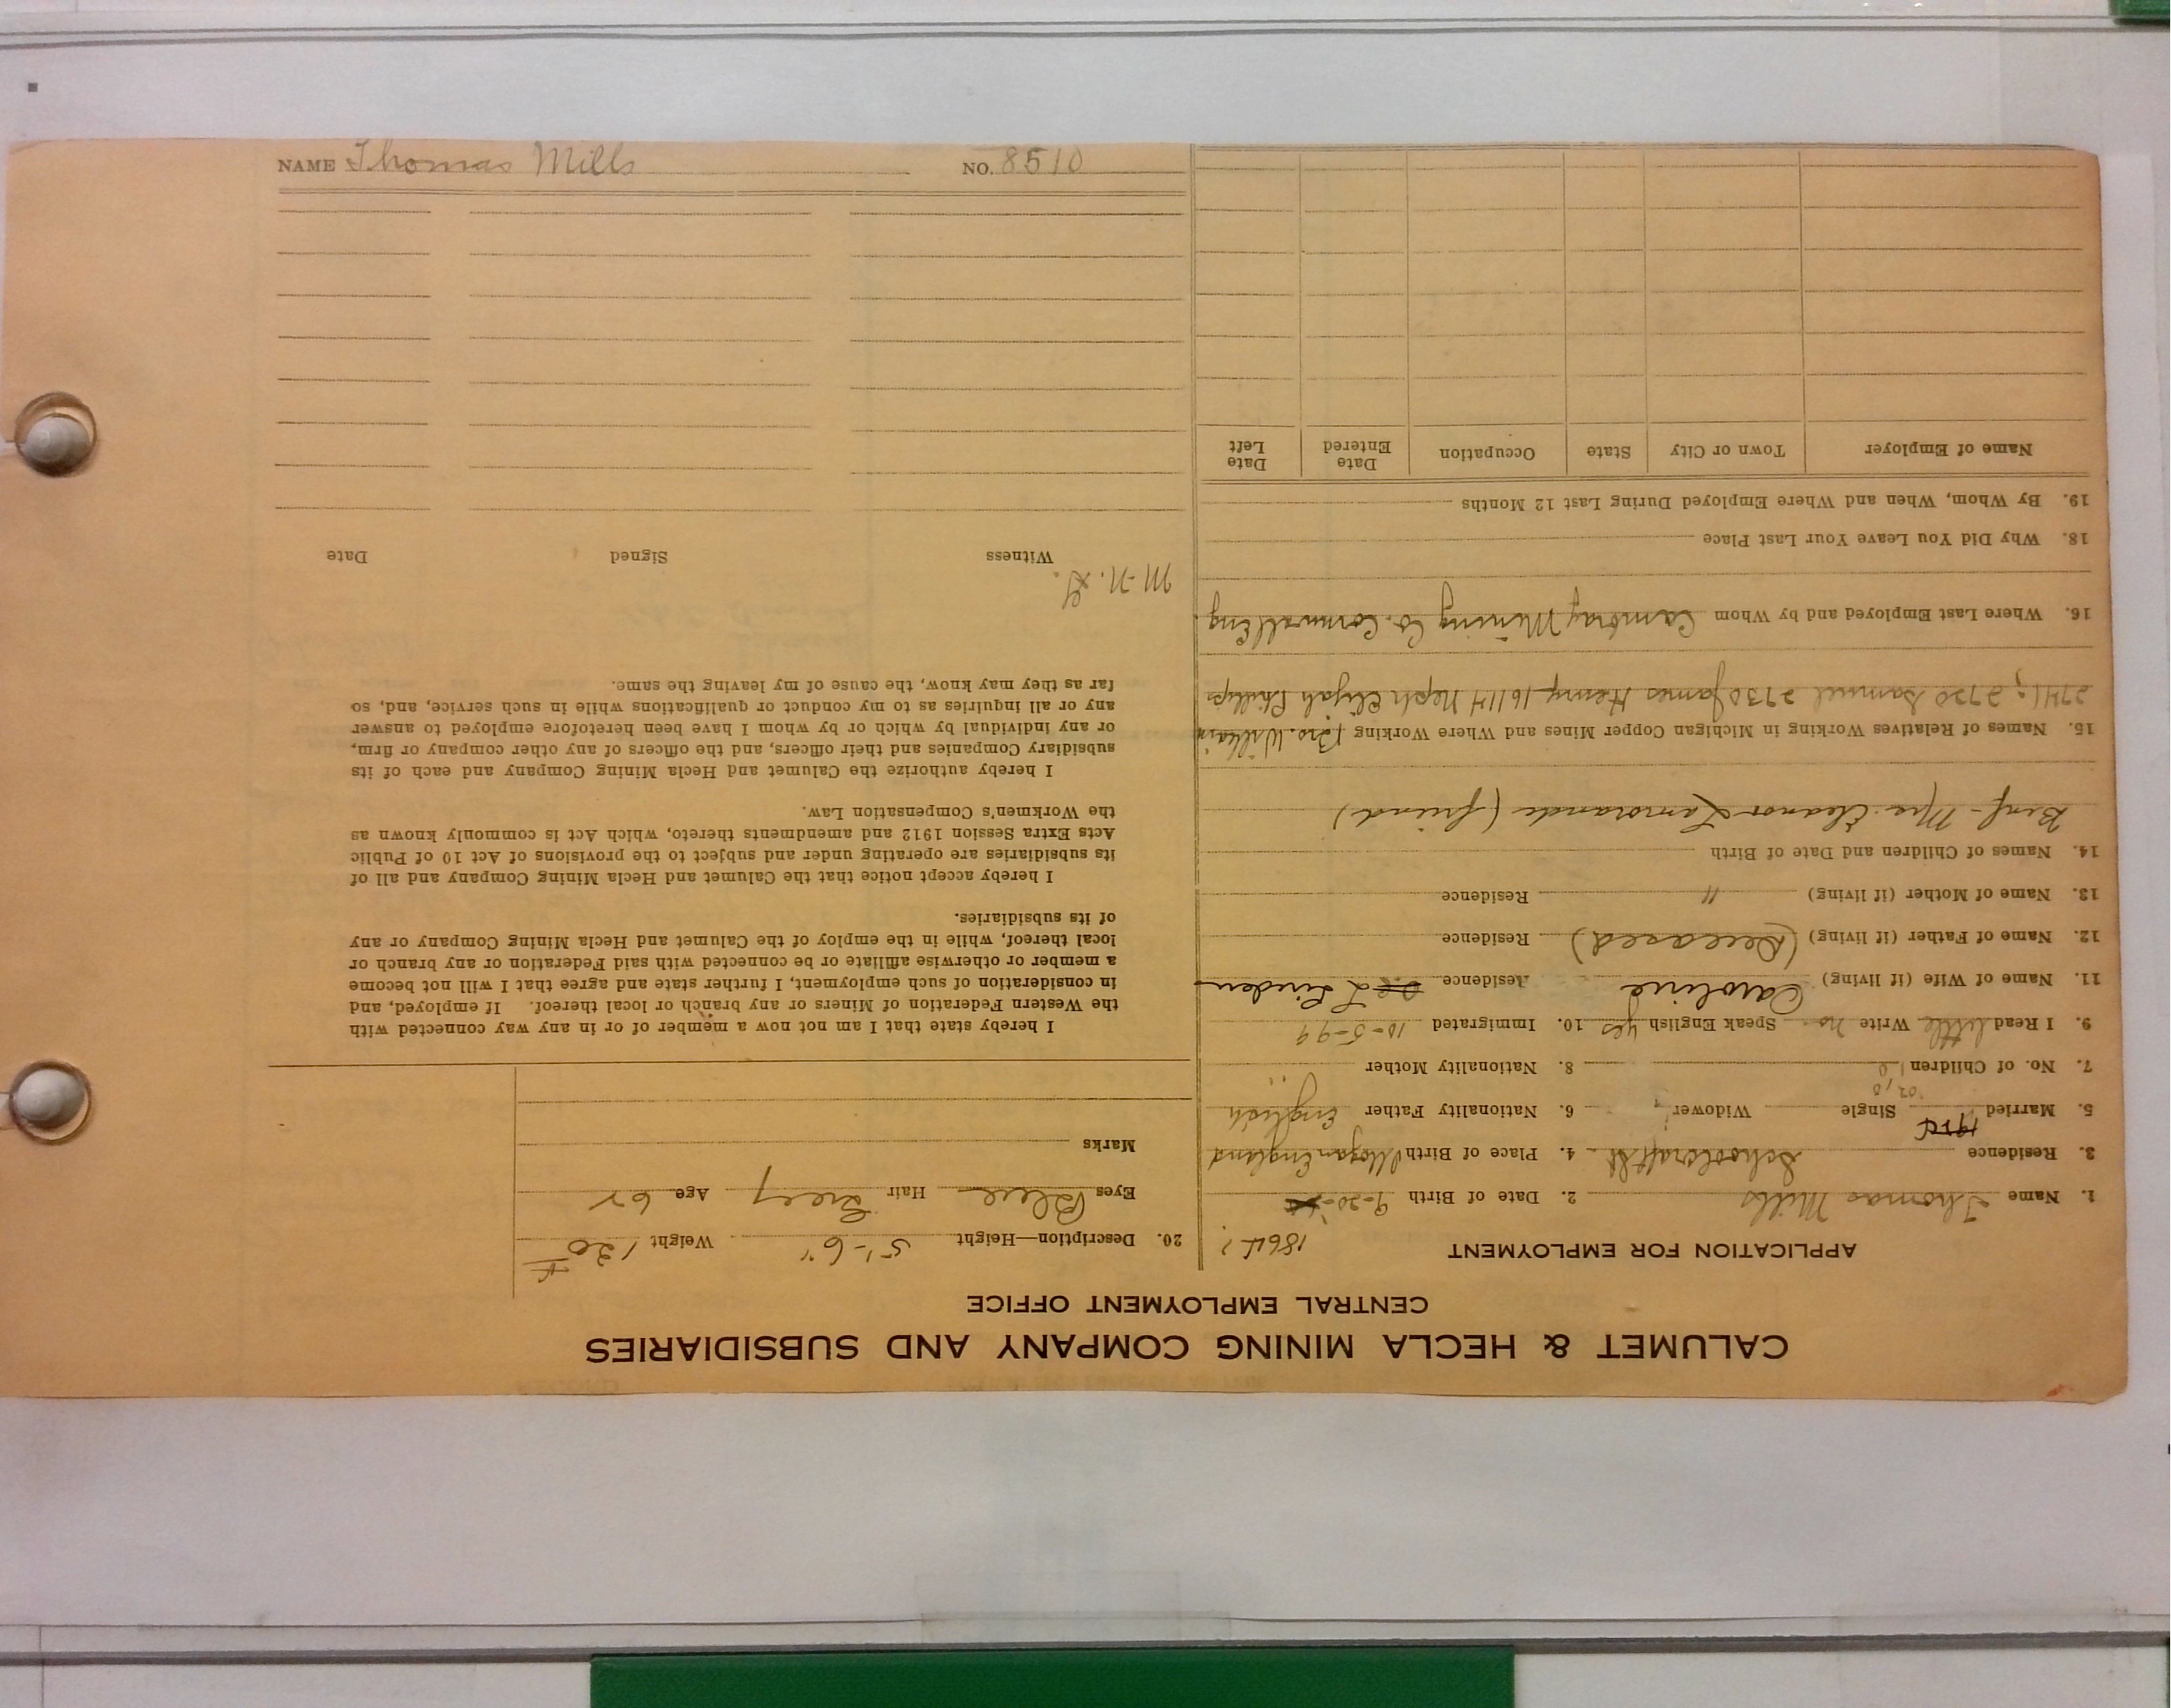 CALUMET & HECLA MINING COMPANY AND SUBSIDIARIES
CENTRAL EMPLOYMENT OFFICE
APPLICATION FOR EMPLOYMENT
1864?
1. Name Thomas Mills 2. Date of Birth 9-20-
3. Residence Schoolcraft St. 4. Place of Birth Illogan England
5. Married Single Widower 6. Nationality Father English
7. No. of Children 8. Nationality Mother "
9. I Read little Write no Speak English yes 10. Immigrated 10-5-99
11. Name of Wife (if living) Caroline Residence L Linden
12. Name of Father (if living) (Deceased) Residence
13. Name of Mother (if living) " Residence
14. Names of Children and Date of Birth
Benf - Mrs. Eleanor Lamorande (friend)
15. Names of Relatives Working in Michigan Copper Mines and Where Working Bro. William
2741; 2720 Samuel 2730 James Henry 16114 Neph Elijah Phillips
16. Where Last Employed and by Whom Cambray Mining Co. Cornwall Eng.
18. Why Did You Leave Your Last Place
19. By Whom, When and Where Employed During Last 12 Months
Name of Employer Town or City State Occupation Date Entered Date Left
20. Description—Height 5'-6" Weight 130
Eyes Blue Hair Grey Age 62
Marks
I hereby state that I am not now a member of or in any way connected with
the Western Federation of Miners or any branch or local thereof. If employed, and
in consideration of such employment, I further state and agree that I will not become
a member or otherwise affiliate or be connected with said Federation or any branch or
local thereof, while in the employ of the Calumet and Hecla Mining Company or any
of its subsidiaries.
I hereby accept notice that the Calumet and Hecla Mining Company and all of
its subsidiaries are operating under and subject to the provisions of Act 10 of Public
Acts Extra Session 1912 and amendments thereto, which Act is commonly known as
the Workmen's Compensation Law.
I hereby authorize the Calumet and Hecla Mining Company and each of its
subsidiary Companies and their officers, and the officers of any other company or firm,
or any individual by which or by whom I have been heretofore employed to answer
any or all inquiries as to my conduct or qualifications while in such service, and, so
far as they may know, the cause of my leaving the same.
Witness Signed Date
NAME Thomas Mills NO. 8510